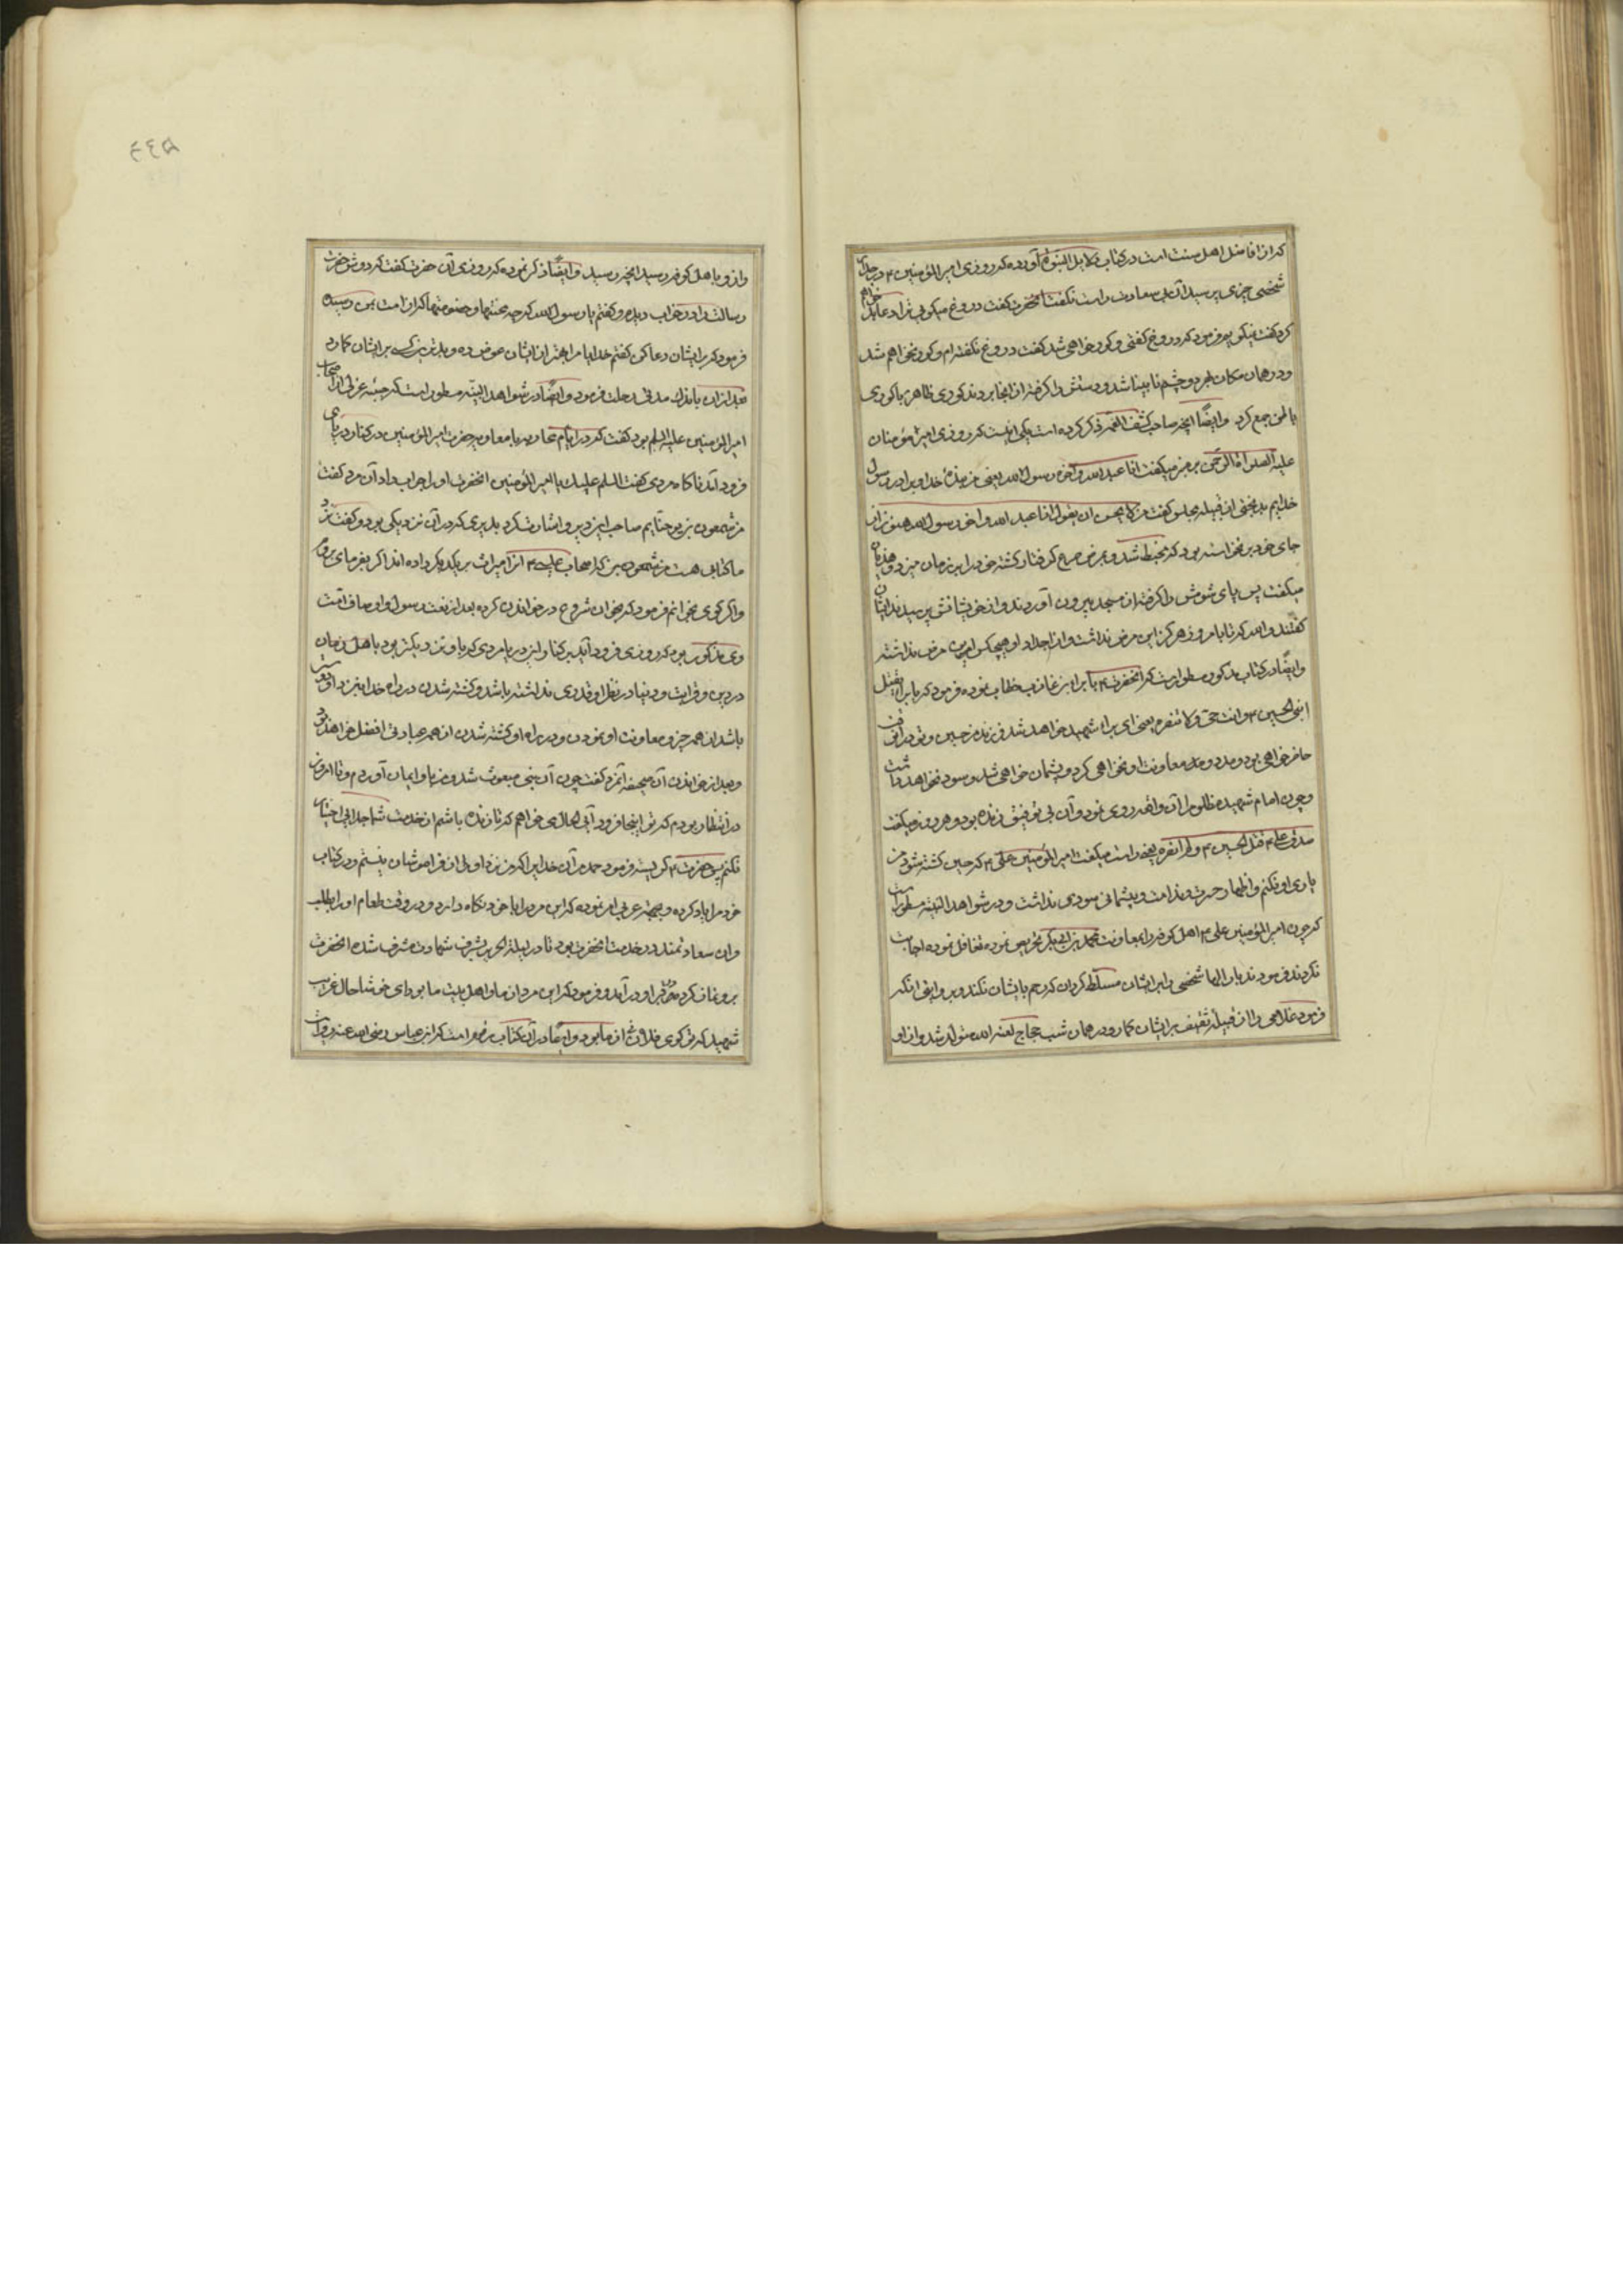 که از افاضل اهل سنت است در کتاب دلایل النبوة آورده که روزی امیر المؤمنین ۴ در
شخصی چیزی پرسید آن بی سعادت راست نکفت آنحضرت کفت دروغ میکویی ترا دعا
کرد کفت بکو پس فرمود که دروغ کفتی و کور خواهی شد کفت دروغ نکفته ام و کور نخواهم شد
و در همان مکان هر دو چشم نابینا شد و دستش را کرفته از انجا بردند کوری ظاهر با کوری
باطن جمع کرد وایضًا انچه صاحب کشف الغمه ذکر کرده است یکی اینست که روزی امیر مؤمنان
علیه الصلواة الرحمن بر منبر میکفت انا عبد الله و اخو رسول الله یعنی من بنده خدا و برادر رسول
خدایم بدبختی از قبیله کفت من لا یحسن ان یقول انا عبد الله و اخو رسول الله هنوز از
جای خود بر نخواسته بود که مخبط شد و بمرض صرع کرفتار کشته خود را بر زمان میزد و هذیان
میکفت پس پای شومش را کرفته از مسجد بیرون آوردند و از خویشانش پرسیدند ایشان
کفتند والله که تا بامروز هرکز این مرض نداشت و از اجداد او هیچکس این مرض نداشته
وایضًا در کتاب مذکور مسطور است که آنحضرت ۴ با براء بن عازب خطاب نموده فرمود که یا براء یقتل
ابنی الحسین ۴ و انت حی و لا تنصره یعنی ای براء شهید خواهد شد فرزند من حسین و تو در آن وقت
حاضر خواهی بود و مدد و معاونت او نخواهی کرد و پشمان خواهی شد و سود نخواهد داشت
و چون امام شهید مظلوم را آن واقعه روی نمود و آن بی توفیق زنده بود و هر روز میکفت
صدق علی ۴ قتل الحسین ۴ و لم انصره یعنی راست میکفت امیر المؤمنین علی ۴ که حسین کشته شود من
یاری او نکنم و اظهار حسرت و ندامت و پیشمانی سودی نداشت و در شواهد النبوة مسطور است
که چون امیر المؤمنین علی ۴ اهل کوفه را بمعاونت محمد بن ابی بکر تحریص نمود تغافل نموده اجابت
نکردند فرمودند بار الها شخصی را بر ایشان مسلط کردان که رحم بایشان نکند و بروایتی آنکه
فرمود غلامی را از قبیله ثقیف بر ایشان کمار و در همان شب حجاج لعنه الله متولد شد و از او
۴۴۵
واز و باهل کوفه رسید انچه رسید وایضًا ذکر نموده که روزی آن حضرت کفت که دوش حضرت
رسالت را در خواب دیدم و کفتم یا رسول الله که چه محنتها و خصومتها که از امت بمن رسیده
فرمود که بر ایشان دعا کن کفتم خدایا مرا بهتر از ایشان عوض ده و بدترین کسی بر ایشان کمار
بعد از آن باندک مدتی رحلت فرمود وایضًا در شواهد النبوة مسطور است که حبه عرنی از اصحاب
امیر المؤمنین علیه السلم بود کفت که در ایام محاربه با معاویه حضرت امیر المؤمنین در کنار دریای
فرود آمد ناکاه مردی کفت السلم علیک یا امیر المؤمنین انحضرت او را جواب داد آن مرد کفت
من شمعون بن یوحنایم صاحب این دیر و اشارت کرد بدیری که در آن نزدیکی بود و کفت نزد
ما کتابی هست من شمعون بن که اصحاب عیسی ۴ انرا میراث بر یکدیکر داده اند اکر بفرمای
و اکر کوی بخوانم فرمود که بخوان شروع در خواندن کرده بعد از نعت رسول و اوصاف امت
وی مذکور بود که روزی فرود آید بر کنار این دریا مردی که باو نزدیکتر بود باهل زمان
در دین و قرابت و دنیا در نظر او قدری نداشته باشد و کشته شدن در راه خدا نزد او
باشد از همه چیز و معاونت او نمودن و در راه او کشته شدن از همه عبادتی افضل خواهد بود
و بعد از خواندن آن صحیفه آنمرد کفت چون آن نبی مبعوث شد من باو ایمان آوردم و تا امروز
در انتظار بودم که تو اینجا فرود آیی الحال می خواهم که تا زنده باشم از خدمت شما جدایی اختیار
نکنم پس حضرت ۴ کریست و فرمود حمد مر آن خدایرا که من نزد او از فراموشان نیستم و در کتاب
خود مرا یاد کرده و بحبه عرنی امر نموده که این مرد را با خود نکاه دارد و در وقت طعام او را بطلبد
و ان سعادتمند در خدمت انحضرت بود تا در لیلة الهریر بشرف شهادت مشرف شده انحضرت
بر و نماز کرد و بقبر او در آمد و فرمود که این مرد از ما و اهل بیت ما بود ای خوشا حال غریب
شهید که تو کوی از ما بود وایضًا در آن کتاب مذکور است که از ابن عباس رضی الله عنه روایت